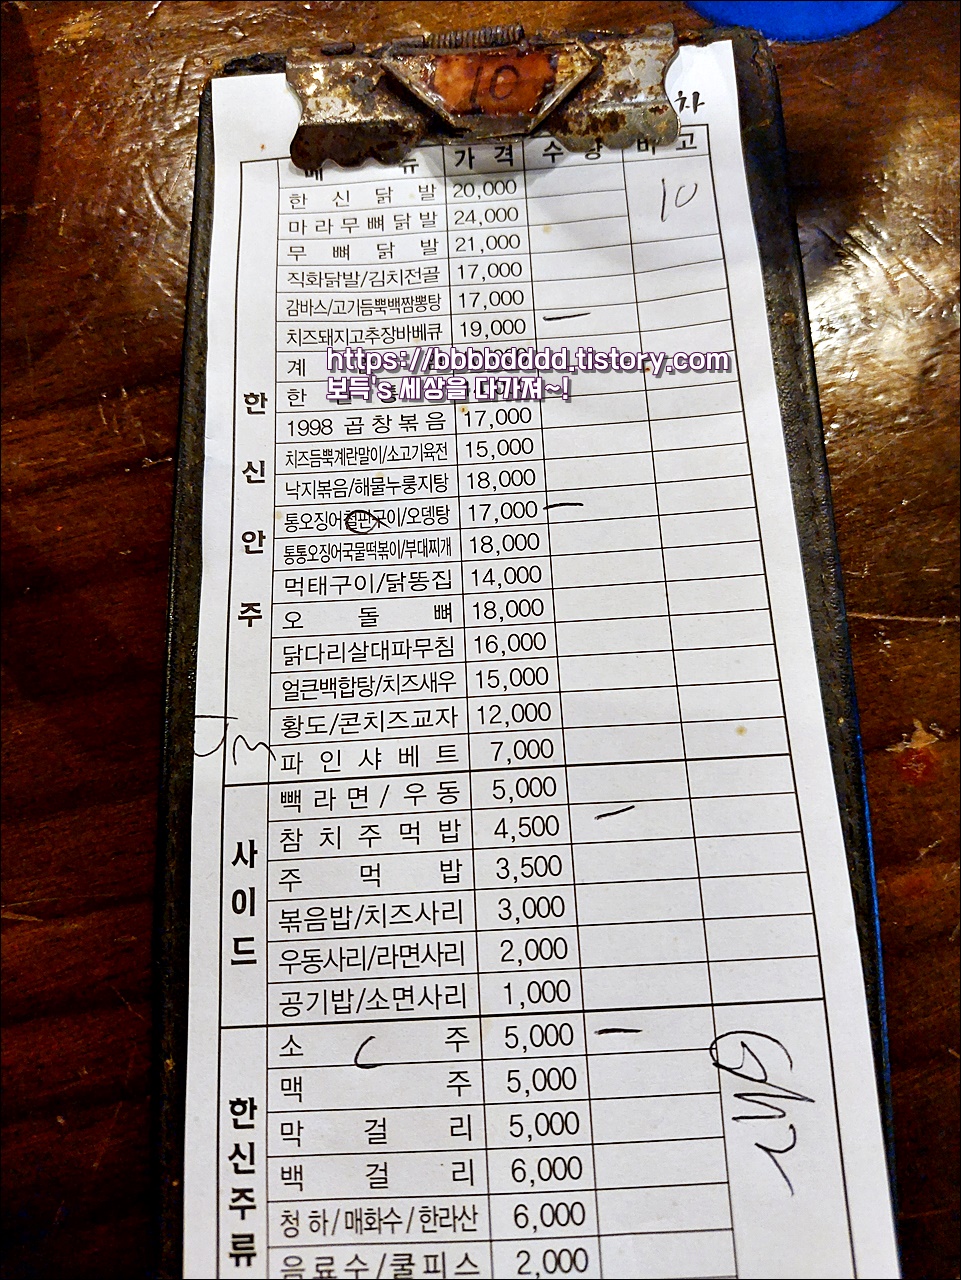 10
차
메 뉴 가 격 수 량 비 고
한 신 닭 발 20,000
10
마라무뼈닭발 24,000
무 뼈 닭 발 21,000
직화닭발/김치전골 17,000
감바스/고기듬뿍백짬뽕탕 17,000
치즈돼지고추장바베큐 19,000
계
https://bbbbdddd.tistory.com
보득's 세상을 다가져~!
한
1998 곱창볶음 17,000
치즈듬뿍계란말이/소고기육전 15,000
낙지볶음/해물누룽지탕 18,000
통오징어철판구이/오뎅탕 17,000
통통오징어국물떡볶이/부대찌개 18,000
먹태구이/닭똥집 14,000
오 돌 뼈 18,000
닭다리살대파무침 16,000
얼큰백합탕/치즈새우 15,000
황도/콘치즈교자 12,000
파 인 샤 베 트 7,000
한신안주
빽라면/우동 5,000
참 치 주 먹 밥 4,500
주 먹 밥 3,500
볶음밥/치즈사리 3,000
우동사리/라면사리 2,000
공기밥/소면사리 1,000
사이드
소 주 5,000
맥 주 5,000
막 걸 리 5,000
백 걸 리 6,000
청하/매화수/한라산 6,000
음료수/쿨피스 2,000
한신주류